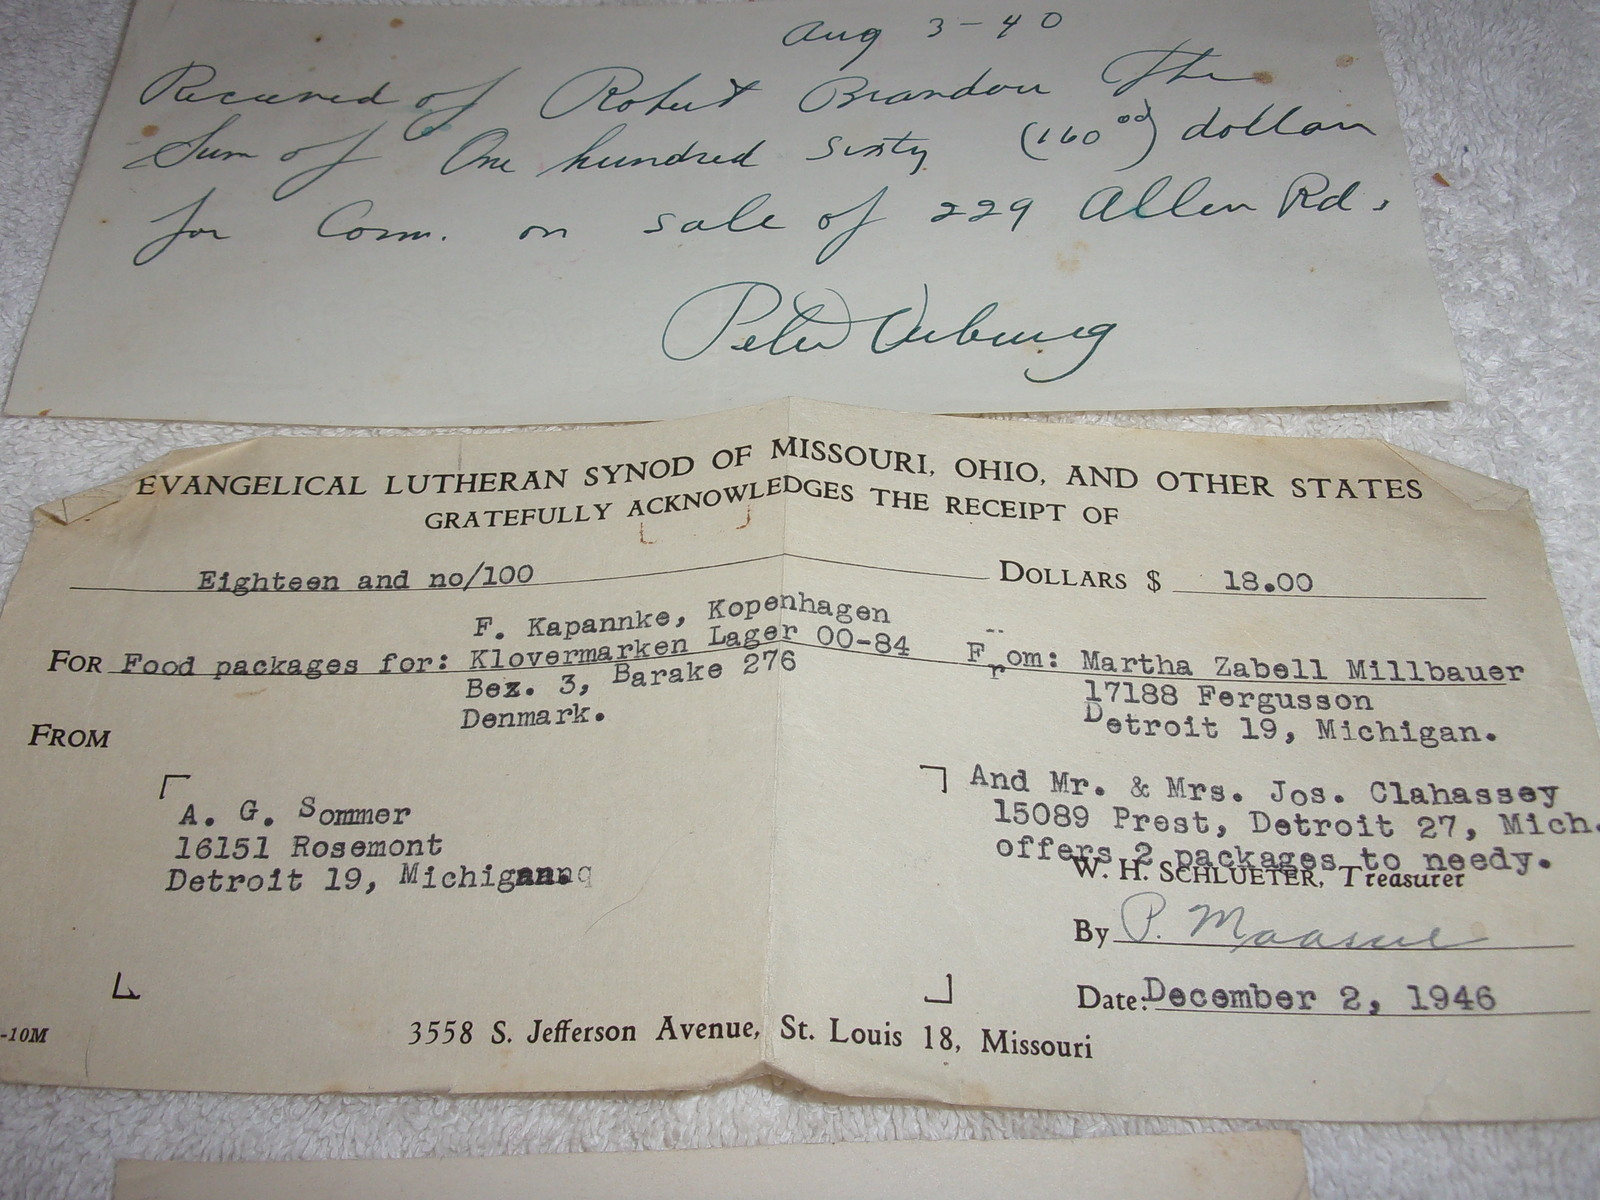 Aug 3-40
Received of Robert Brandon The
Sum of One hundred sixty (160 00) dollars
for Comm. on sale of 229 Allen Rd.
Peter
EVANGELICAL LUTHERAN SYNOD OF MISSOURI, OHIO, AND OTHER STATES
GRATEFULLY ACKNOWLEDGES THE RECEIPT OF
Eighteen and no/100 DOLLARS $ 18.00
F. Kapannke, Kopenhagen
FOR Food packages for: Klovermarken Lager 00-84
Bez. 3, Barake 276
Denmark.
From: Martha Zabell Millbauer
17188 Fergusson
Detroit 19, Michigan.
FROM
A. G. Sommer
16151 Rosemont
Detroit 19, Michigan.
And Mr. & Mrs. Jos. Clahassey
15089 Prest, Detroit 27, Mich.
offers 2 packages to needy.
W. H. SCHLUETER, Treasurer
By P.
Date: December 2, 1946
-10M
3558 S. Jefferson Avenue, St. Louis 18, Missouri